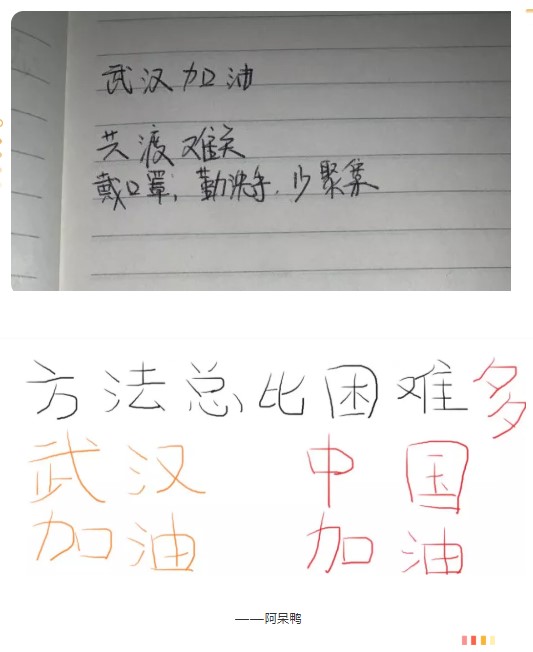 武汉加油
共渡难关
戴口罩,勤洗手,少聚集
方法总比困难多
武汉 中国
加油 加油
——阿呆鸭